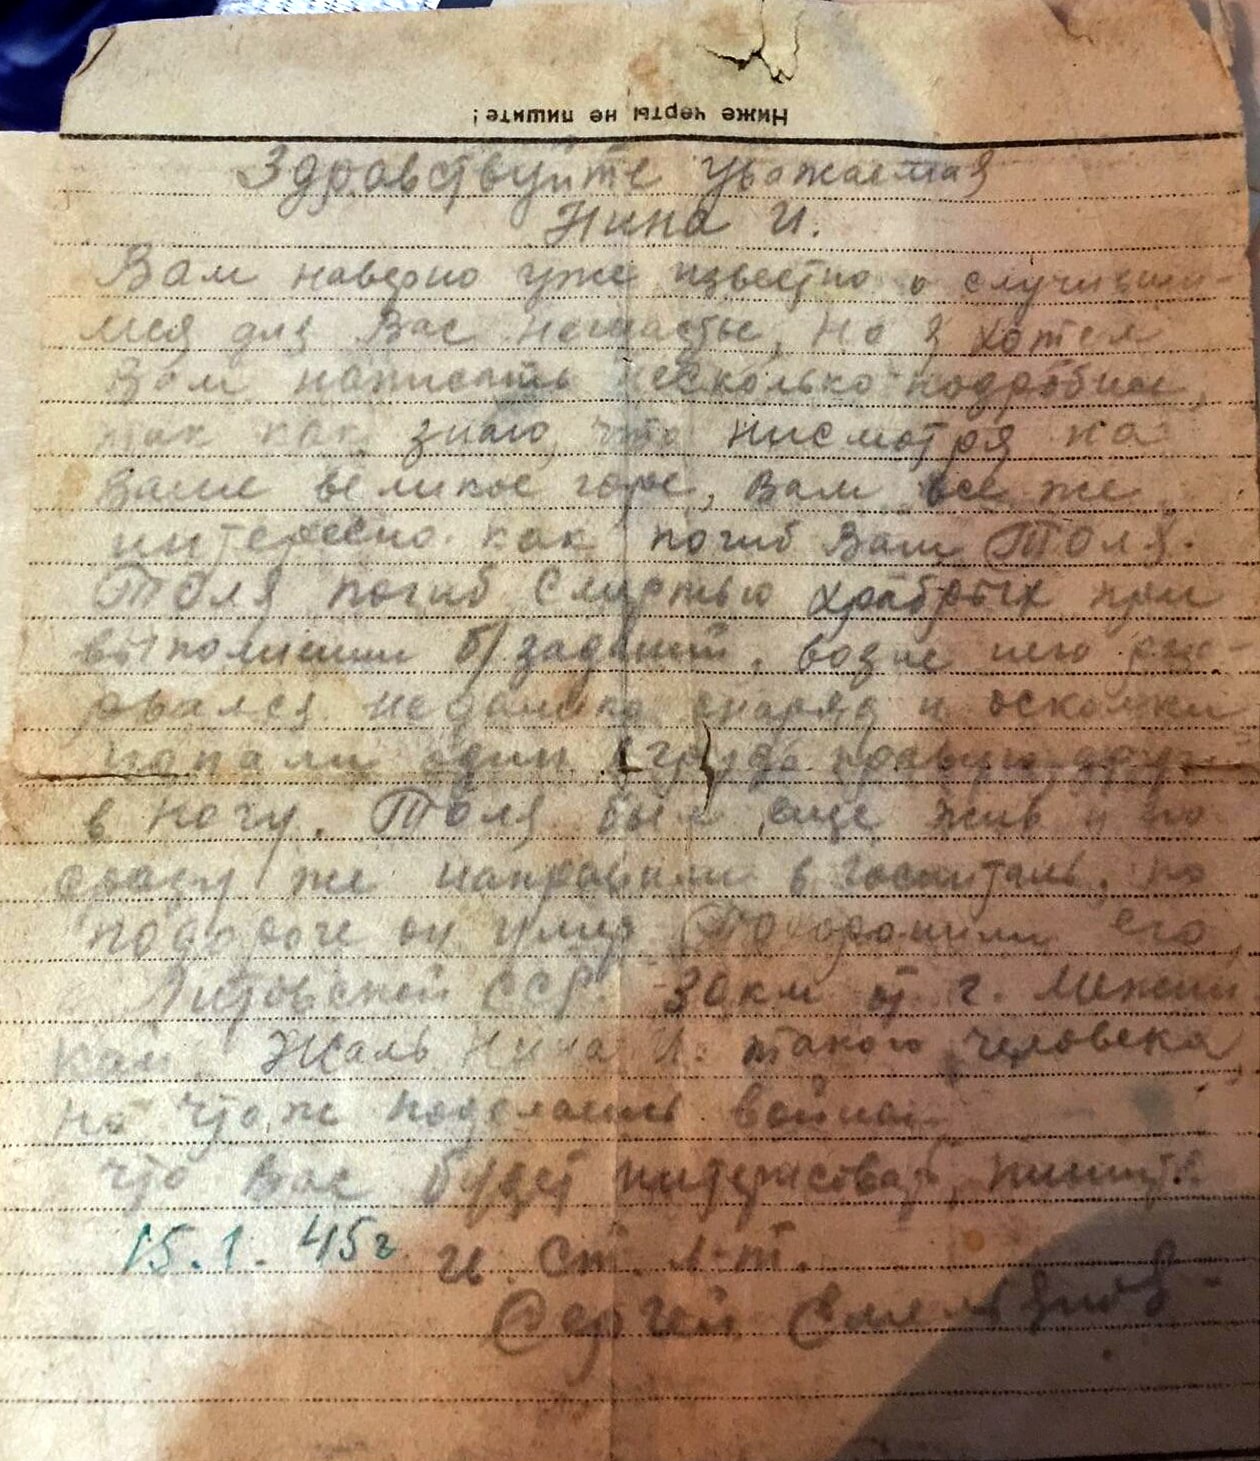 Ниже черты не пишите!
Здравствуйте уважаемая
Нина И.
Вам наверно уже известно о случивши-
мся для Вас несчастье, но я хотел
Вам написать несколько подробнее,
так как знаю, что нисмотря на
Ваше великое горе, Вам все же
интересно как погиб Ваш Толя.
Толя погиб смертью храбрых при
выполнении б/заданий. возле него раз-
орвался недалеко снаряд и осколки
попали один в грудь правую другой
в ногу. Толя был еще жив и
сразу же направили в госпиталь. но
подороге он умер Похоронили его
Литовской ССР. 30 км от г.
Жаль Нина И. такого человека
но что ж поделаешь война
что Вас будет интересовать, пишите.
15.1.45г. и. Ст. л-т.
Сергей